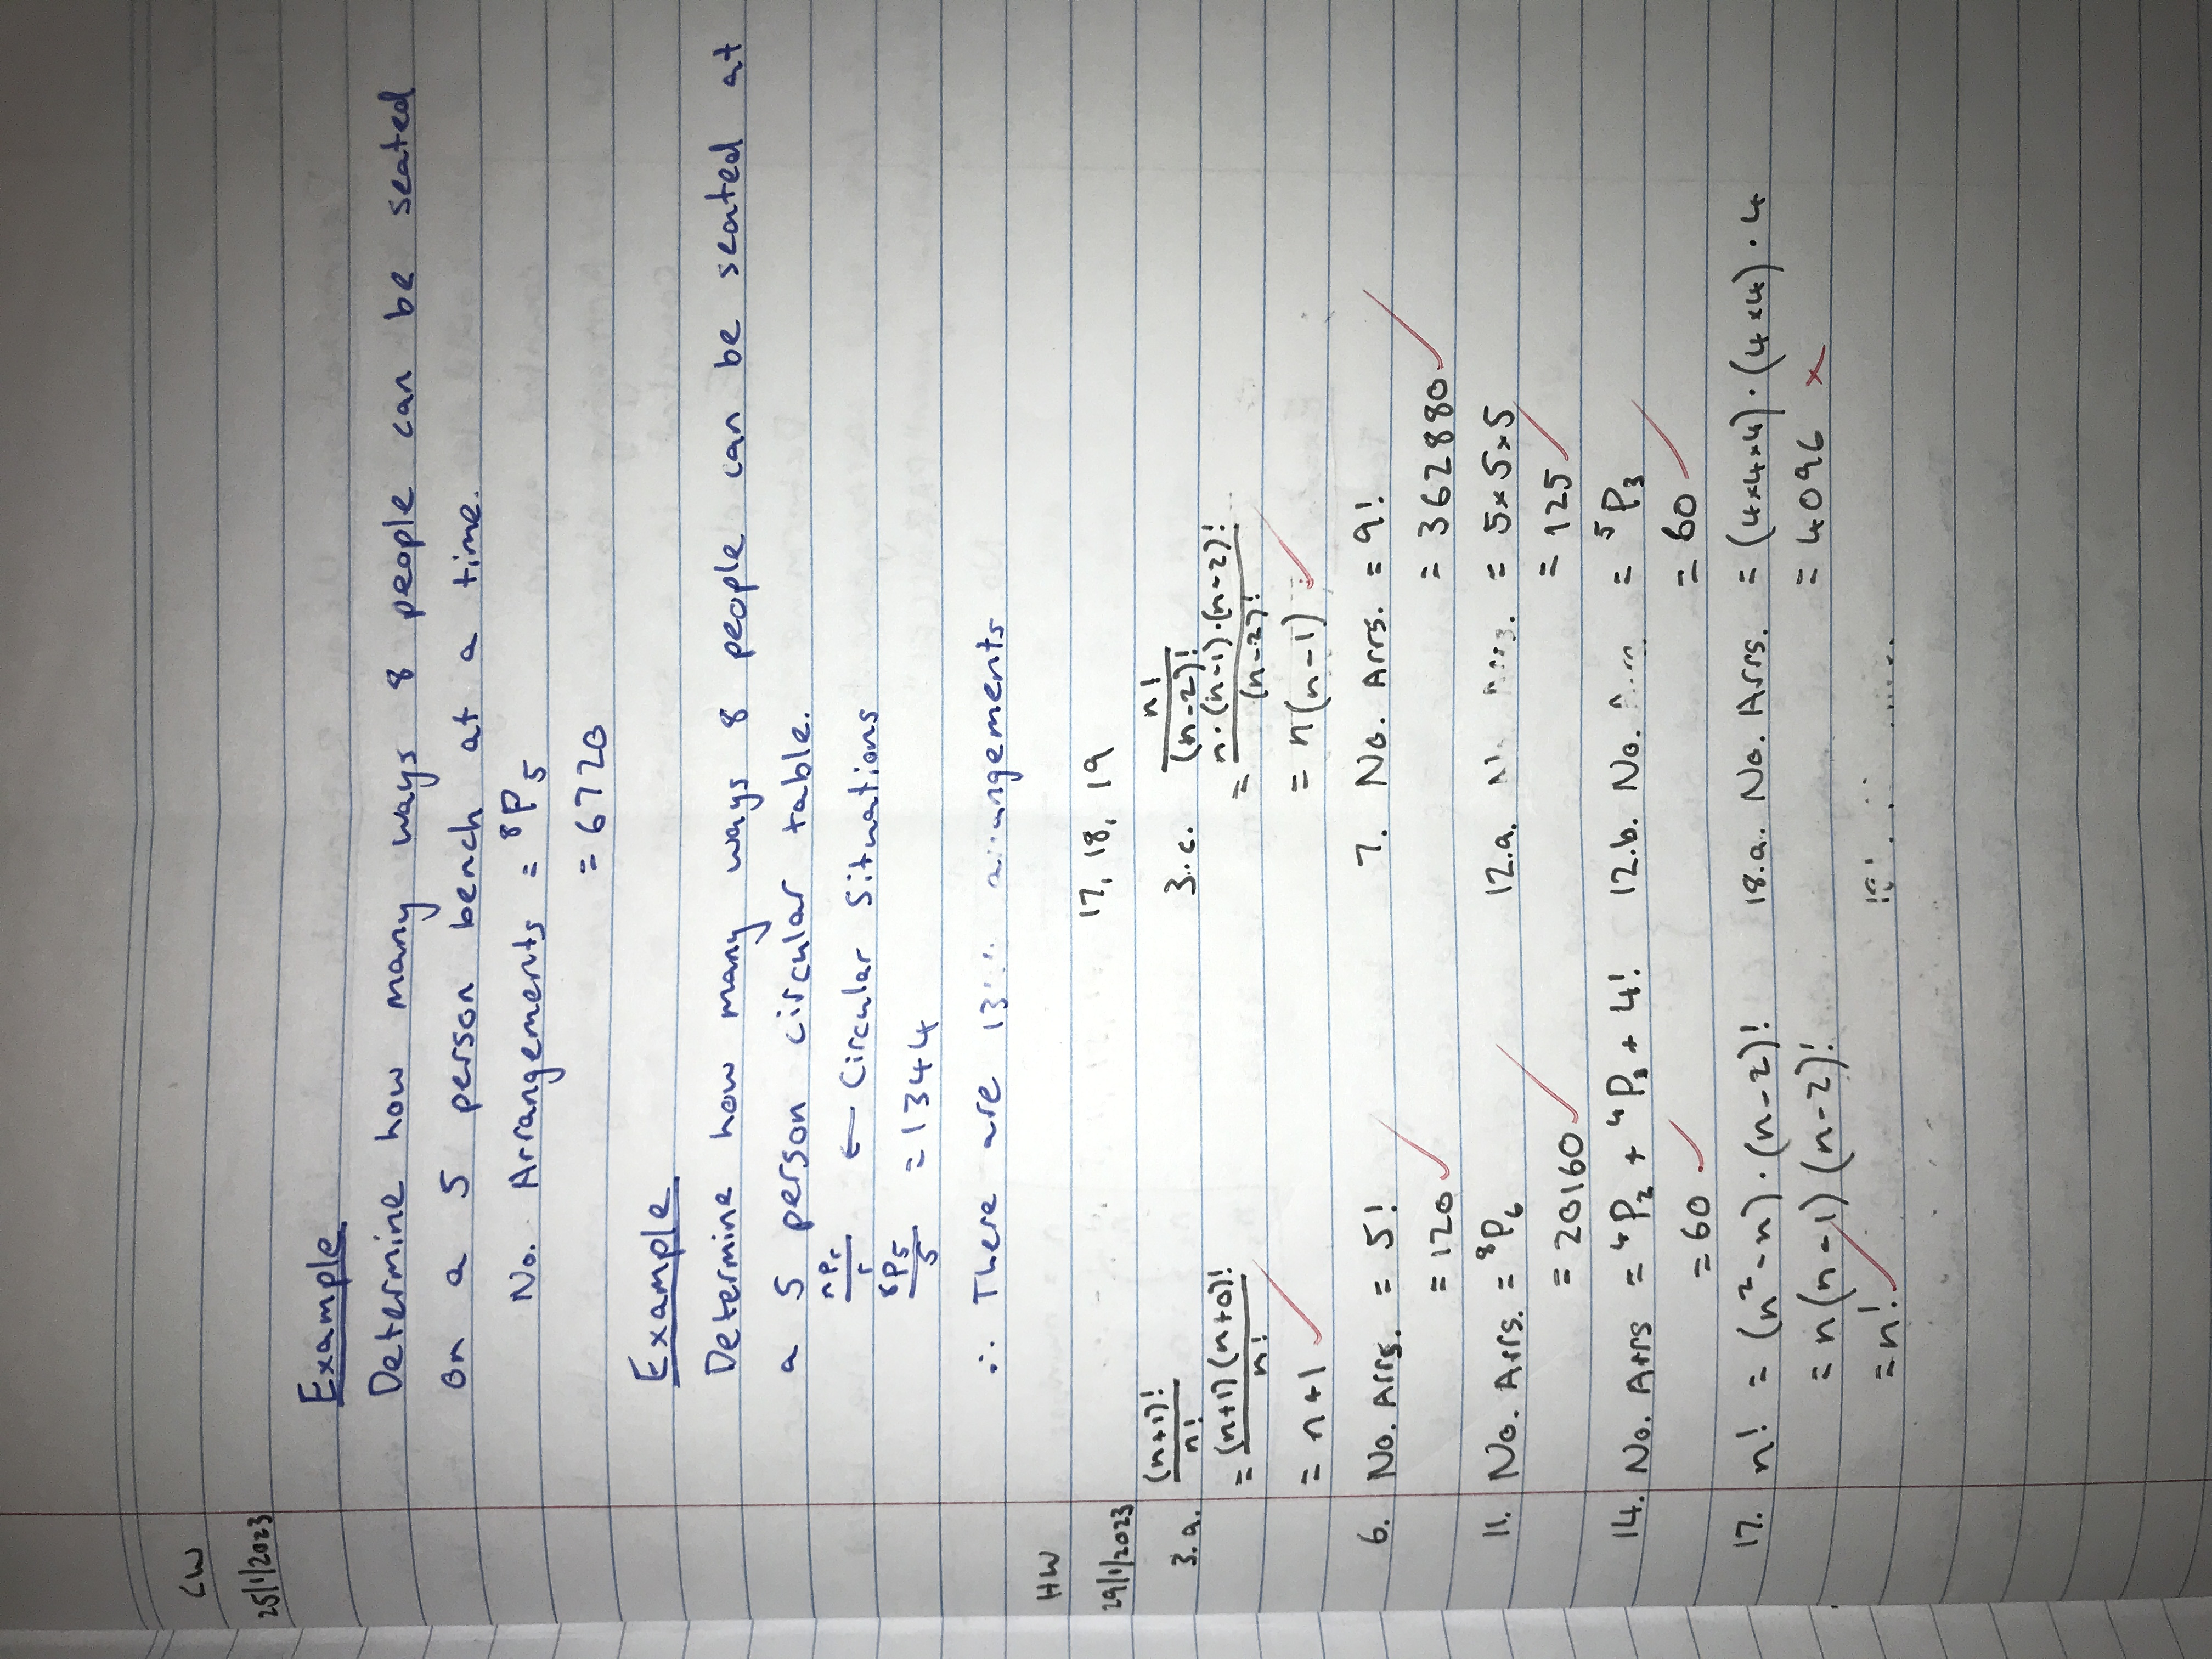 CW
25/1/2023
Example
Determine how many ways 8 people can be seated
on a 5 person bench at a time.
No. Arrangements = ⁸P₅
= 6720
Example
Determine how many ways 8 people can be seated at
a 5 person circular table.
nPr/r ← Circular Situations
⁸P₅/5 = 1344
∴ There are arrangements
HW
29/1/2023
17, 18, 19
3.a. (n+1)!/n!
= (n+1)(n+0)!/n!
= n+1
3.c. n!/(n-2)!
= n·(n-1)·(n-2)!/(n-2)!
= n(n-1)
6. No. Arrs. = 5!
= 120
7. No. Arrs. = 9!
= 362880
11. No. Arrs. = ⁸P₆
= 20160
12.a. = 5×5×5
= 125
14. No. Arrs = ⁴P₂ + ⁴P₃ + 4!
= 60
12.b. No. = ⁵P₃
= 60
17. n! = (n²-n)·(n-2)!
= n(n-1)(n-2)!
= n!
18.a. No. Arrs. = (4×4×4)·(4×4)·4
= 4096